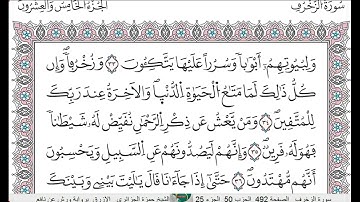 سُورَةُ الزُّخْرُفِ الجُزْءُ الخَامِسُ وَالعِشْرُونَ
وَلِبُيُوتِهِمُۥٓ أَبْوَٰبًا وَسُرُرًا عَلَيْهَا يَتَّكِـُٔونَ وَزُخْرُفًا وَإِن
كُلُّ ذَٰلِكَ لَمَا مَتَٰعُ الْحَيَوٰةِ الدُّنْيَا وَالَاخِرَةُ عِندَ رَبِّكَ
لِلْمُتَّقِينَ وَمَنْ يَّعْشُ عَن ذِكْرِ الرَّحْمَٰنِ نُقَيِّضْ لَهُۥ شَيْطَٰنًا
فَهُوَ لَهُۥ قَرِينٌ وَإِنَّهُمْ لَيَصُدُّونَهُمْ عَنِ السَّبِيلِ وَيَحْسِبُونَ
أَنَّهُم مُّهْتَدُونَ حَتَّىٰٓ إِذَا جَآءَٰنَا قَالَ يَٰلَيْتَ بَيْنِي وَبَيْنَكَ
سورة الزخرف الصفحة 492 الحزب 50 الجزء 25 الشيخ حمزة الجزائري الأزرق برواية ورش عن نافع